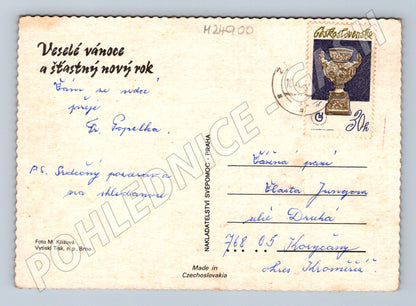 M24900
Československo
30h
Veselé vánoce
a šťastný nový rok
Vám ze srdce
přeje
Fr. Popelka.
P.S. Srdečný pozdrav a
na shledanou
Foto M. Křížová
Vytiskl Tisk, n.p., Brno
NAKLADATELSTVÍ SVÉPOMOC - PRAHA
Made in
Czechoslovakia
Vážená paní
Vlasta Jungova
ulic Druhá
768 05 Koryčany
okres Kroměříž
POHLEDNICE